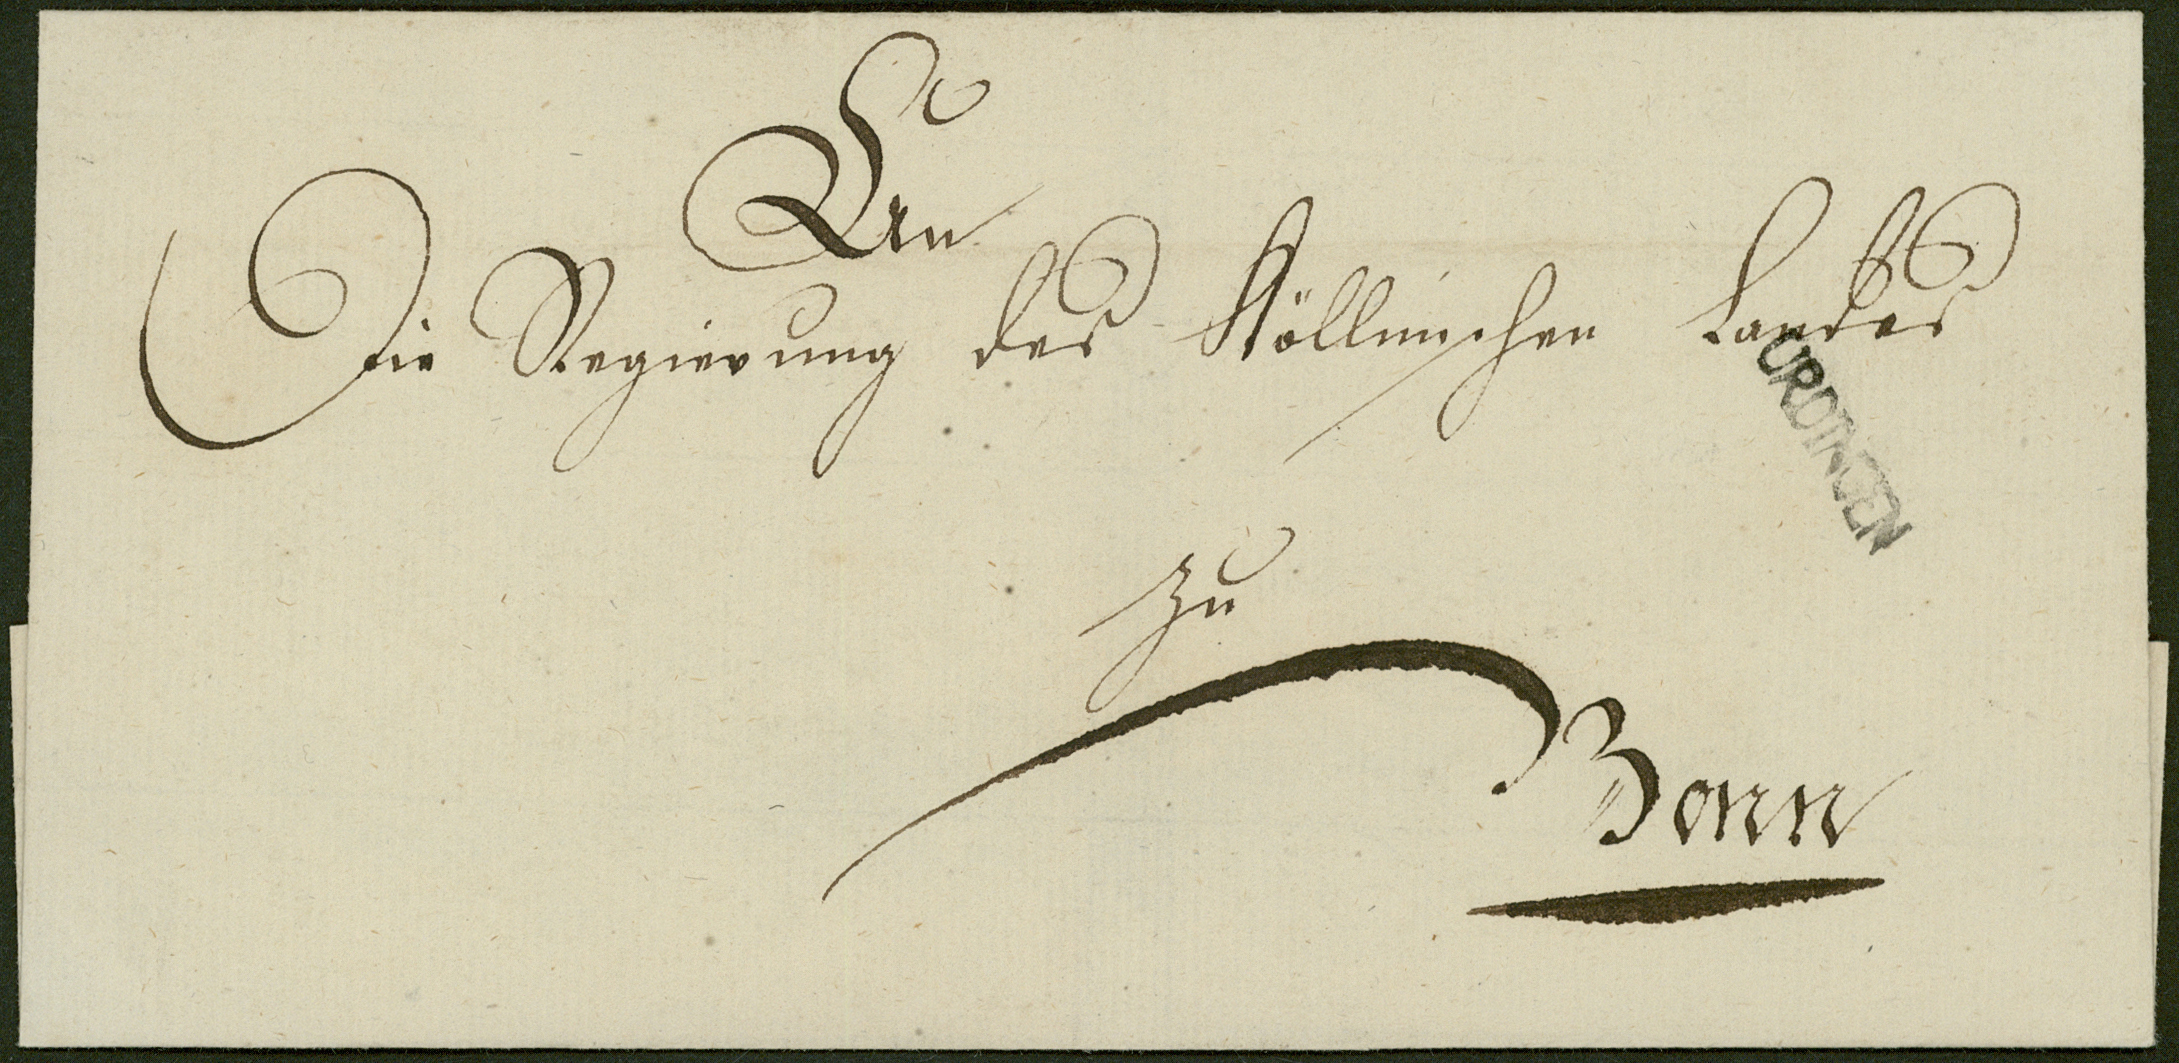 An
die Regierung des Köllnischen Landes
URDINGEN
zu
Bonn